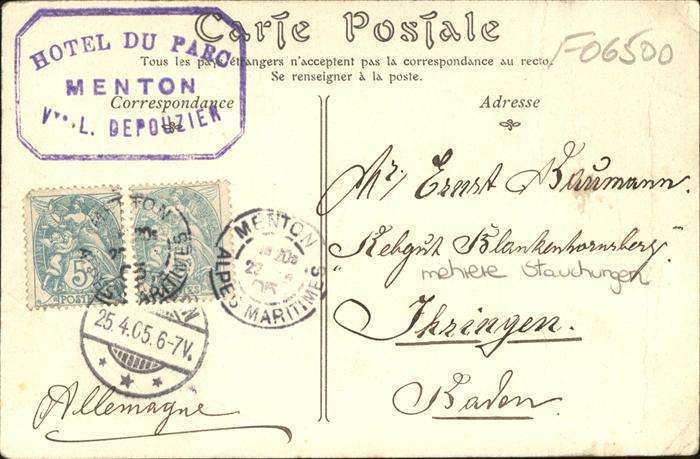 Carte Postale
Tous les pays étrangers n'acceptent pas la correspondance au recto.
Se renseigner à la poste.
HOTEL DU PARC
MENTON
Vve L. DEPOUZIER
F06500
Correspondance
Adresse
Mr. Ernst Baumann
"Rebgut Blankenhornsberg"
mehrere Stauchungen
Ihringen.
Baden.
5
POSTES
MENTON
ALPES MARITIMES
25.4.05.6-7V.
Allemagne